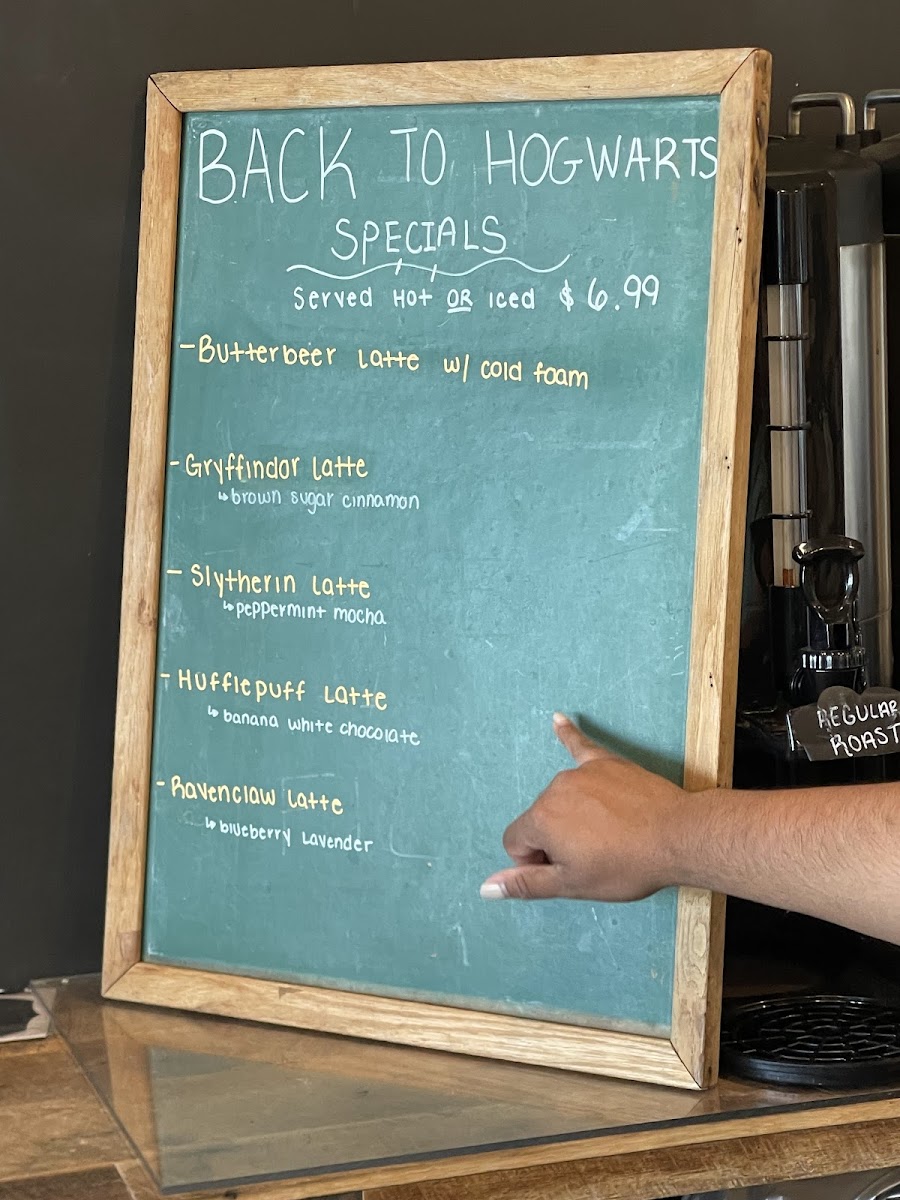 BACK TO HOGWARTS
SPECIALS
Served Hot OR Iced $6.99
- Butterbeer Latte w/ cold foam
- Gryffindor Latte
↳ brown sugar cinnamon
- Slytherin Latte
↳ peppermint mocha
- Hufflepuff Latte
↳ banana white chocolate
- Ravenclaw Latte
↳ blueberry Lavender
REGULAR
ROAST